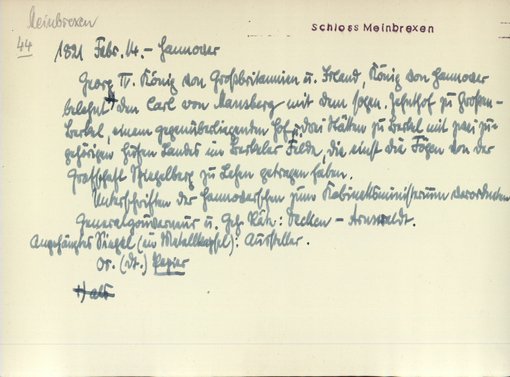 Meinbrexen
Schloss Meinbrexen
44
1821 Febr. 14. - Hannover
Georg IV. König von Großbritannien u. Irland, König von Hannover
belehnt den Carl von Mansberg mit dem sogen. Zehnthof zu Großen-
Berkel, einem gegenüberliegenden Hof u. drei Stätten zu Berkel mit zwei zu-
gehörigen Hufen Landes im Berkeler Felde, die einst die von der
Grafschaft Spiegelberg zu Lehen getragen haben.
Unterschriften der Hannoverschen zum Kabinetsministerium verordneten
Generalgouverneur u. Geh. Räte: Decken - Arnswaldt.
Angehängtes Siegel (in Metallkapsel): Aussteller.
Or. (dt.) Papier